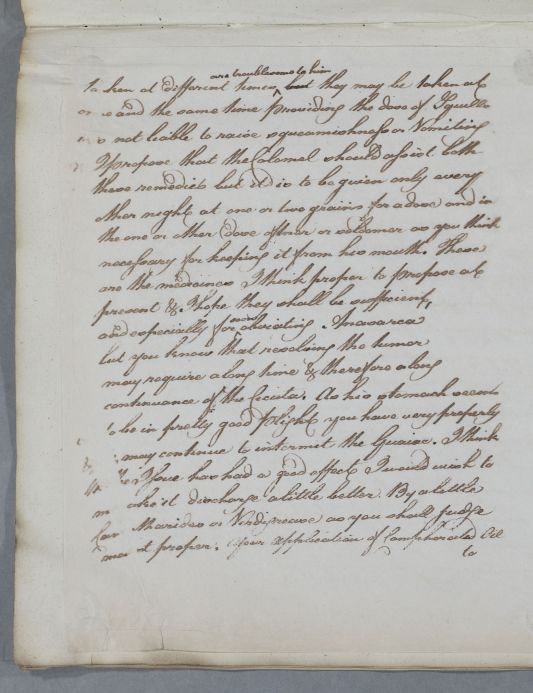 are troublesome to him
taken at different times, but they may be taken at
and the same time providing the dose of Squills
not leible to raise squeamishness or Vomiting
I propose that the Calomel should assist both
these remedies but it is to be given only every
other night at one or two grains for a dose and in
the one or other dose oftner or seldomer as you think
necessary for keeping it from his mouth. These
are the medicines I think proper to propose at
present & I hope they shall be sufficient,
and especially for obviating Anasarca
but you know that resolving the humor
may require a long time & therefore a long
continuance of the Cicuta. As his stomach seems
to be in pretty good plight you have very properly
may continue to intermit the Guaiac. I think
Issue has had a good effect I would wish to
make it discharge a little better By a little
Cantharides or Verdigrease as you shall judge
most proper. Your application of Camphorated Oil
to